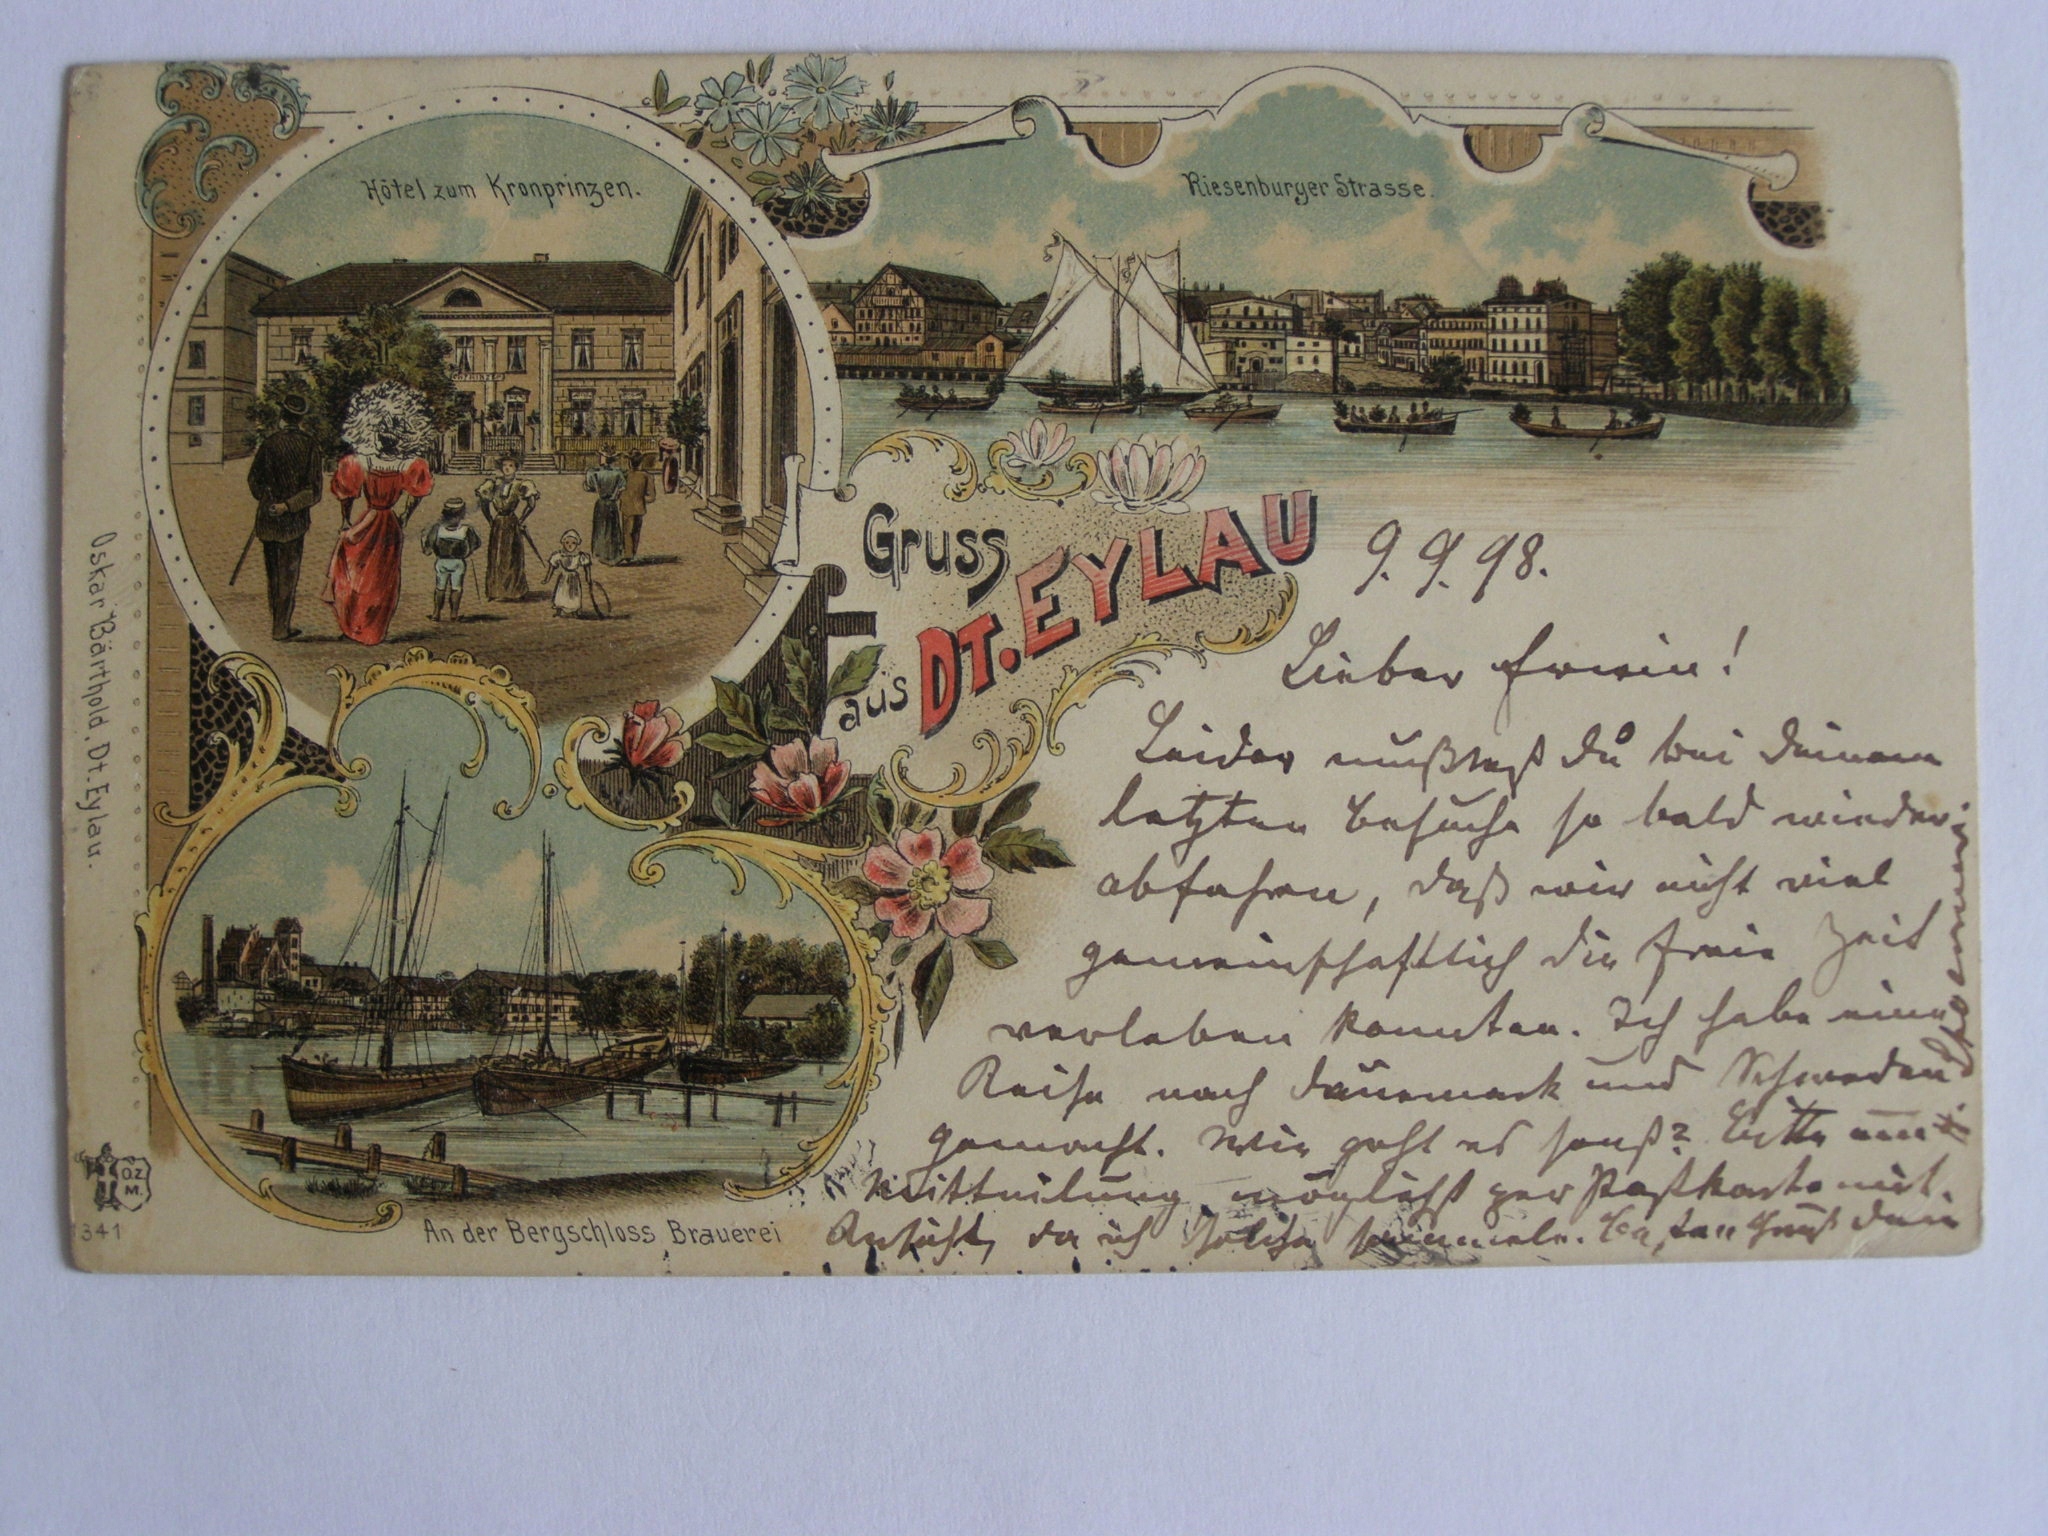 Hôtel zum Kronprinzen.
Riesenburger Strasse.
Gruss
aus DT. EYLAU
9. 9. 98.
Lieber Erwin!
Leider mußtest Du bei Deinem
letzten Besuche so bald wieder
abfahren, daß wir nicht viel
gemeinschaftlich die freie Zeit
verleben konnten. Ich habe eine
Reise nach Dänemark und Schweden
gemacht. Wie geht es sonst? Bitte um
Mitteilung möglichst per Postkarte mit
Ansicht, da ich solche sammele. Besten Gruß Dein
An der Bergschloss Brauerei
Oskar Bärthold, Dt. Eylau.
O.Z.
M.
341